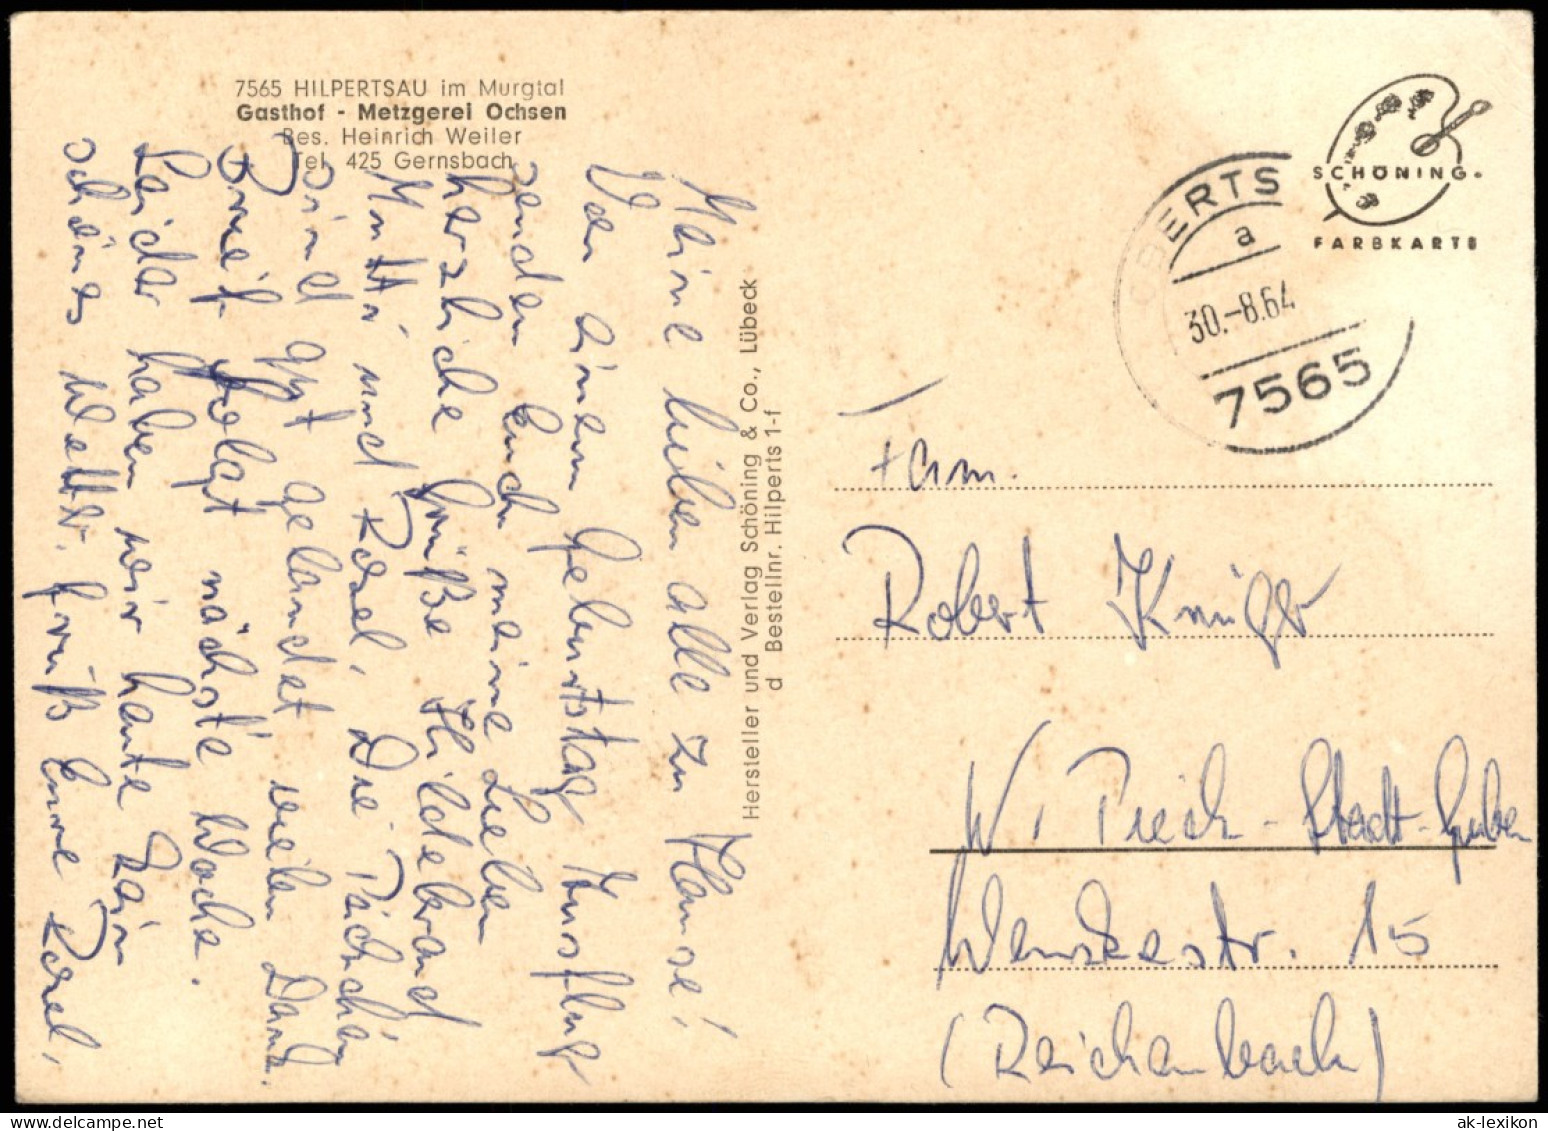 7565 HILPERTSAU im Murgtal
Gasthof - Metzgerei Ochsen
Bes. Heinrich Weiler
Tel. 425 Gernsbach
Meine lieben alle zu Hause!
Von einem Geburtstag Ausflug
senden Euch meine Lieben
herzliche Grüße Hildebrand
Mutti und Rosel, Die Päckchen
sind gut gelandet vielen Dank.
Brief folgt nächste Woche.
Leider haben wir heute kein
schönes Wetter. Gruß Eure Rosel.
Hersteller und Verlag Schöning & Co., Lübeck
d Bestellnr. Hilperts 1-f
SCHÖNING
FARBKARTE
OBERTS
a
30.-8.64
7565
Fam.
Robert Krüger
W. Pieck-Stadt-Guben
Wenskestr. 15
(Reichenbach)
ak-lexikon